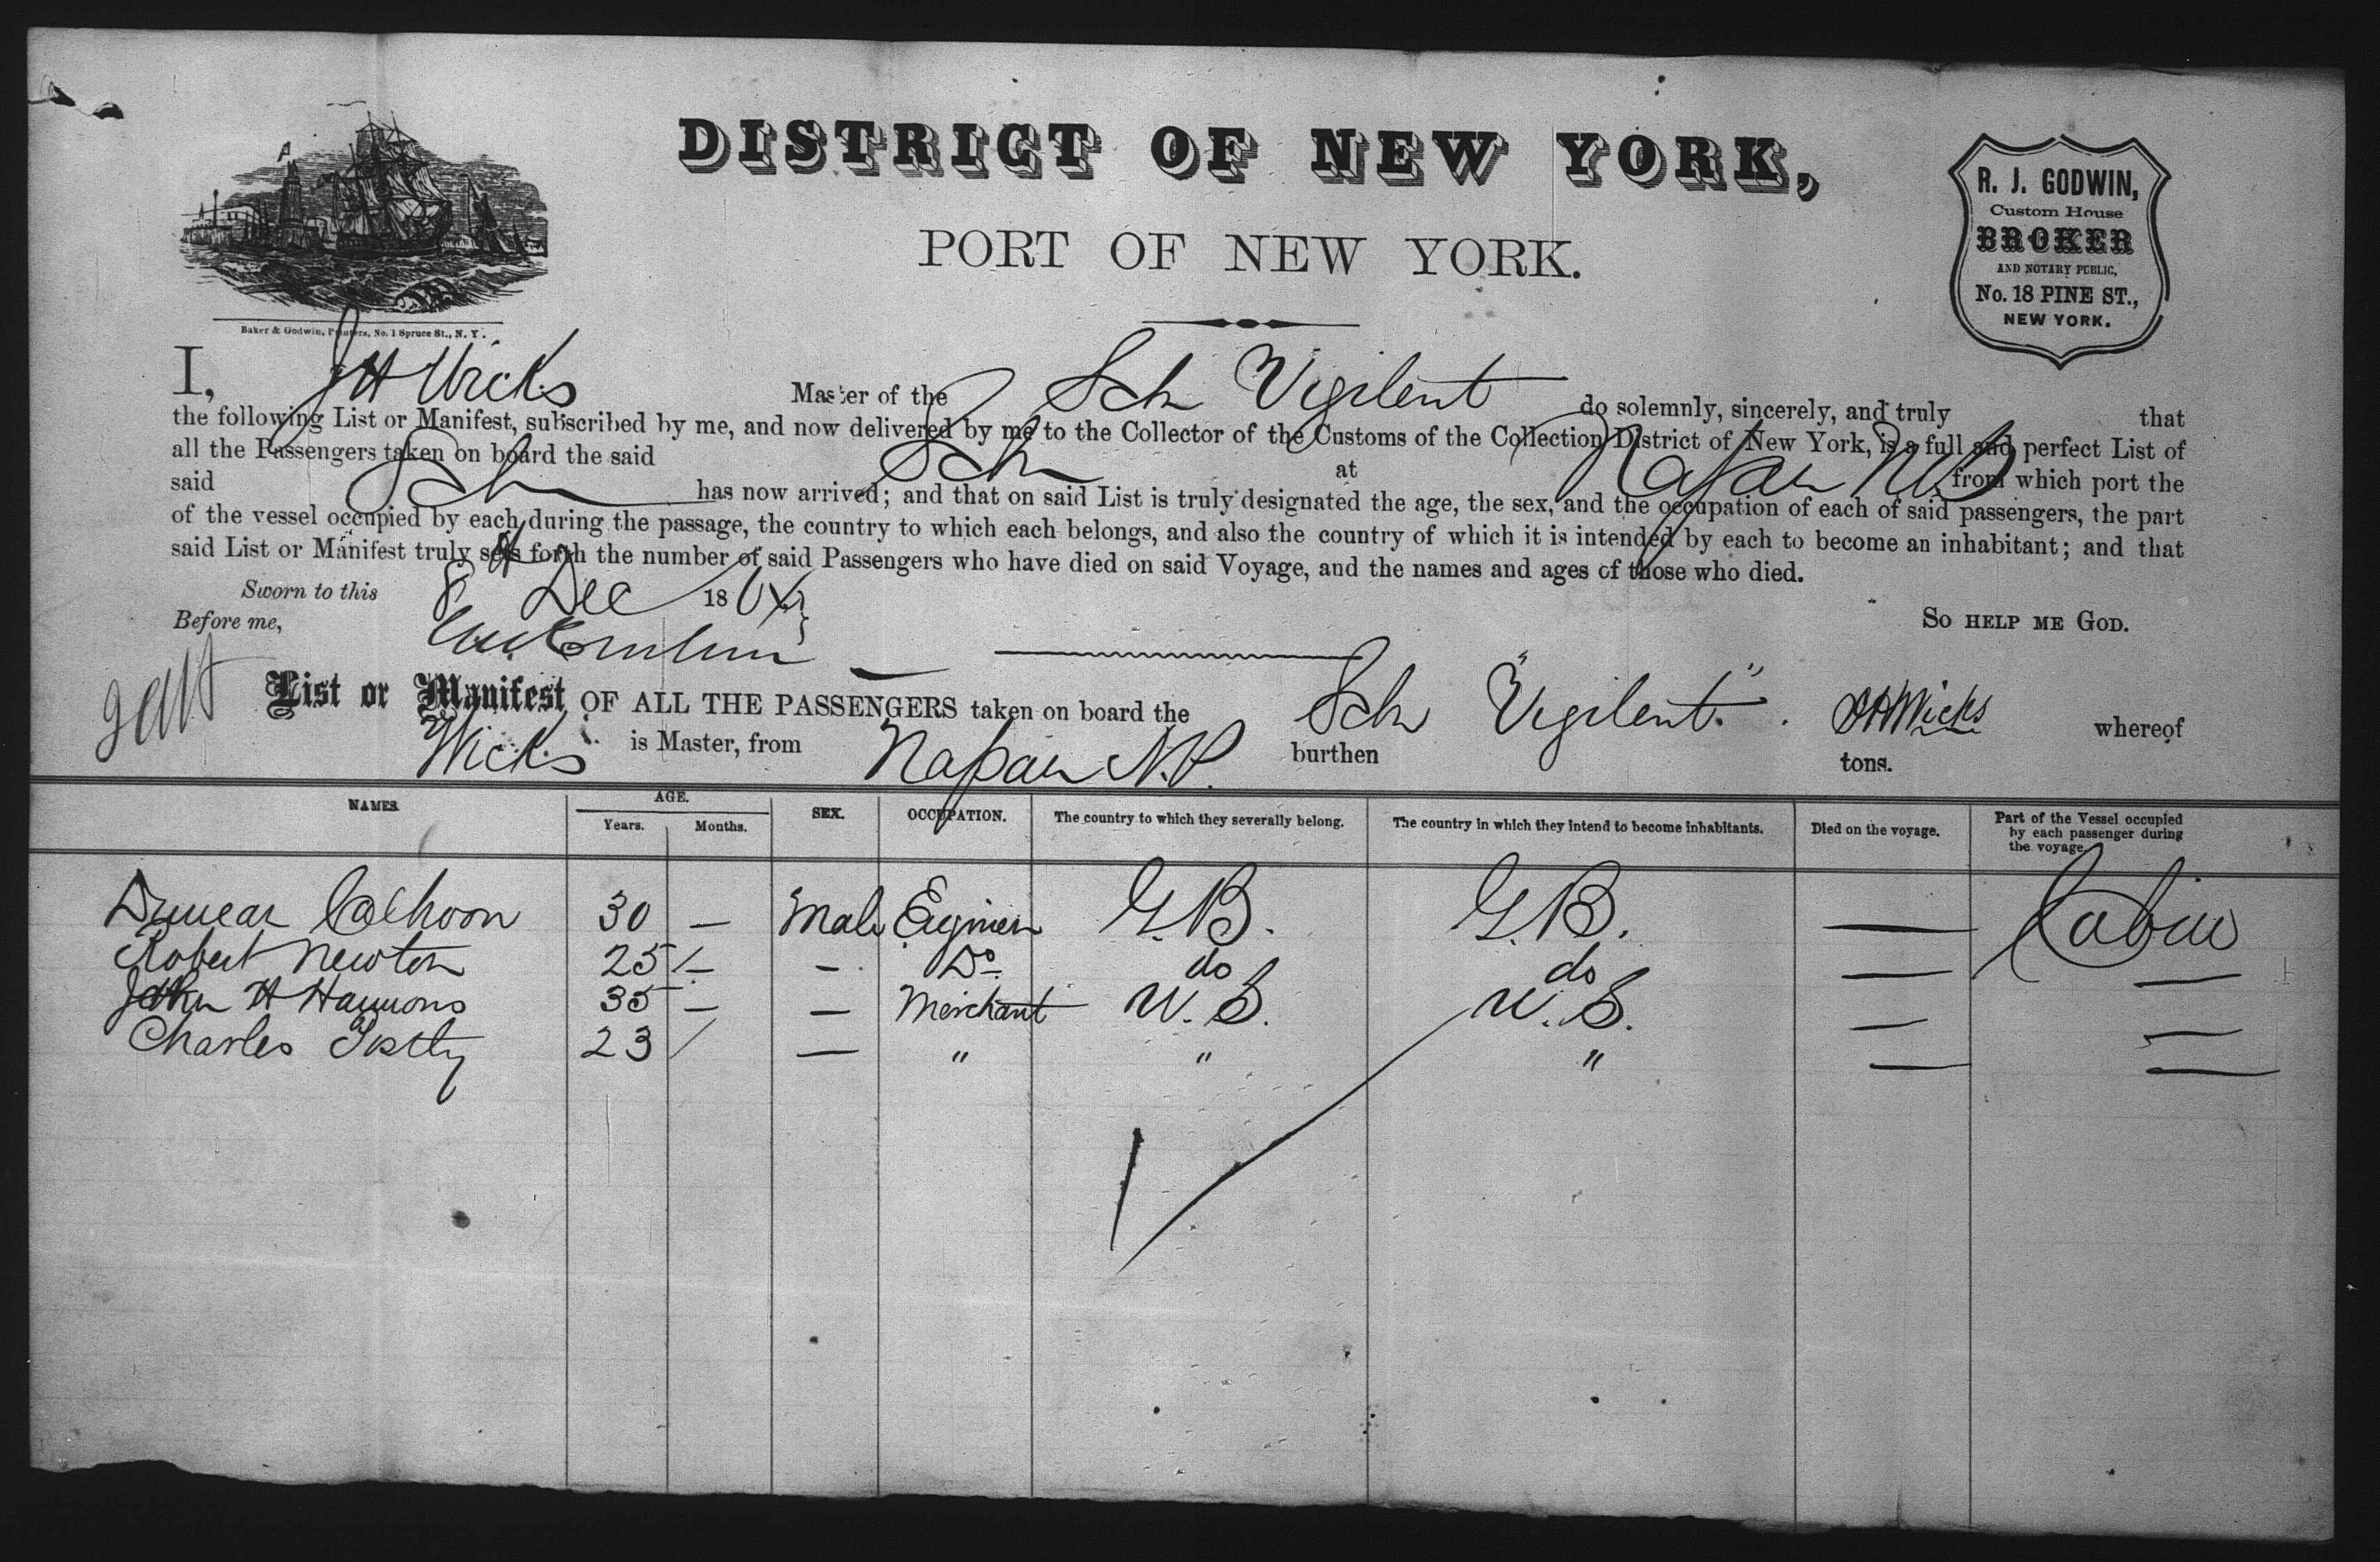 DISTRICT OF NEW YORK,
PORT OF NEW YORK.
R. J. GODWIN,
Custom House
BROKER
AND NOTARY PUBLIC,
No. 18 PINE ST.,
NEW YORK.
Baker & Godwin, Printers, No. 1 Spruce St., N. Y.
I, J H Wicks Master of the Sch Vigilent do solemnly, sincerely, and truly that
the following List or Manifest, subscribed by me, and now delivered by me to the Collector of the Customs of the Collection District of New York, is a full and perfect List of
all the Passengers taken on board the said Sch at from which port the
said Sch has now arrived; and that on said List is truly designated the age, the sex, and the occupation of each of said passengers, the part
of the vessel occupied by each during the passage, the country to which each belongs, and also the country of which it is intended by each to become an inhabitant; and that
said List or Manifest truly sets forth the number of said Passengers who have died on said Voyage, and the names and ages of those who died.
Sworn to this 8 Dec 186
So help me God.
Before me,
List or Manifest OF ALL THE PASSENGERS taken on board the Sch "Vigilent." J H Wicks whereof
Wicks is Master, from burthen tons.
NAMES. AGE. Years. Months. SEX. OCCUPATION. The country to which they severally belong. The country in which they intend to become inhabitants. Died on the voyage. Part of the Vessel occupied by each passenger during the voyage.
Duncan Calhoon 30 — Male G.B. G.B. — Cabin
Robert Newton 25 — — Do do do — —
John H Hammons 35 — — Merchant U.S. U.S. — —
Charles 23 / — " " " — —